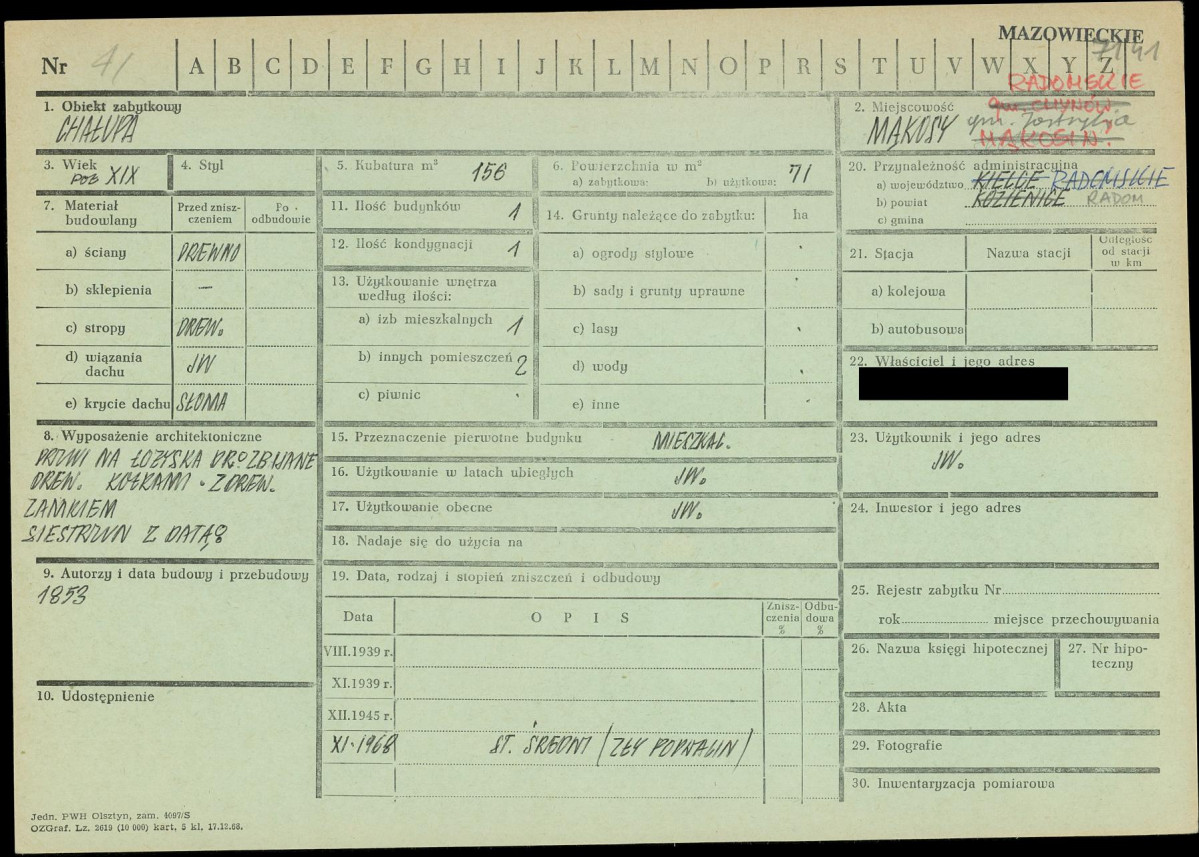 MAZOWIECKIE
71/41
Nr 41 A B C D E F G H I J K L M N O P R S T U V W X Y Z
RADOMSKIE
1. Obiekt zabytkowy
CHAŁUPA
2. Miejscowość
gm. CHYNÓW.
MĄKOSY gm. Jastrzębia
MĄKOSIN.
3. Wiek
POŁ XIX
4. Styl
5. Kubatura m³ 156
6. Powierzchnia w m²
a) zabytkowa: b) użytkowa: 71
20. Przynależność administracyjna
a) województwo KIELCE RADOMSKIE
b) powiat KOZIENICE RADOM
c) gmina
7. Materiał budowlany
Przed zniszczeniem
Po odbudowie
a) ściany DREWNO
b) sklepienia —
c) stropy DREW.
d) wiązania dachu JW
e) krycie dachu SŁOMA
11. Ilość budynków 1
12. Ilość kondygnacji 1
13. Użytkowanie wnętrza
według ilości:
a) izb mieszkalnych 1
b) innych pomieszczeń 2
c) piwnic
14. Grunty należące do zabytku: ha
a) ogrody stylowe
b) sady i grunty uprawne
c) lasy
d) wody
e) inne
21. Stacja Nazwa stacji Odległość od stacji w km
a) kolejowa
b) autobusowa
22. Właściciel i jego adres
8. Wyposażenie architektoniczne
DRZWI NA ŁOŻYSKA DR. ZBIJANE
DREW. KOŁKAMI. Z DREW.
ZAMKIEM
SIESTRZON Z DATĄ
15. Przeznaczenie pierwotne budynku MIESZKAL.
16. Użytkowanie w latach ubiegłych JW.
17. Użytkowanie obecne JW.
18. Nadaje się do użycia na
23. Użytkownik i jego adres
JW.
24. Inwestor i jego adres
9. Autorzy i data budowy i przebudowy
1853
10. Udostępnienie
19. Data, rodzaj i stopień zniszczeń i odbudowy
Data OPIS Zniszczenia % Odbudowa %
VIII.1939 r.
XI.1939 r.
XII.1945 r.
XI.1968 ST. ŚREDNI (ZŁY PODWALIN)
25. Rejestr zabytku Nr
rok miejsce przechowywania
26. Nazwa księgi hipotecznej
27. Nr hipoteczny
28. Akta
29. Fotografie
30. Inwentaryzacja pomiarowa
Jedn. PWH Olsztyn, zam. 4097/S
OZGraf. Lz. 2619 (10 000) kart, 5 kl, 17.12.68.